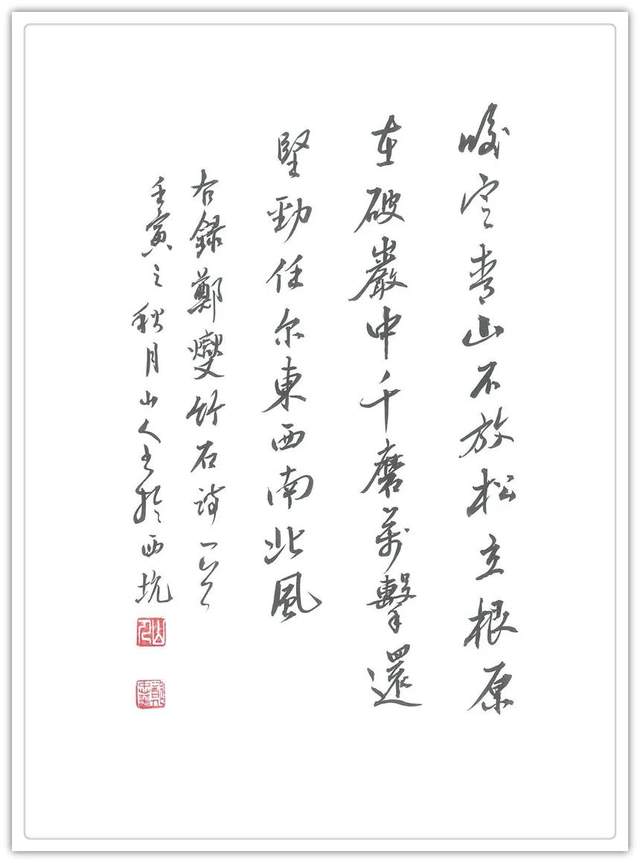 咬定青山不放松立根原
在破巖中千磨萬擊還
堅勁任尔東西南北風
右錄鄭燮竹石詩一首
壬寅之秋月山人書於西坑